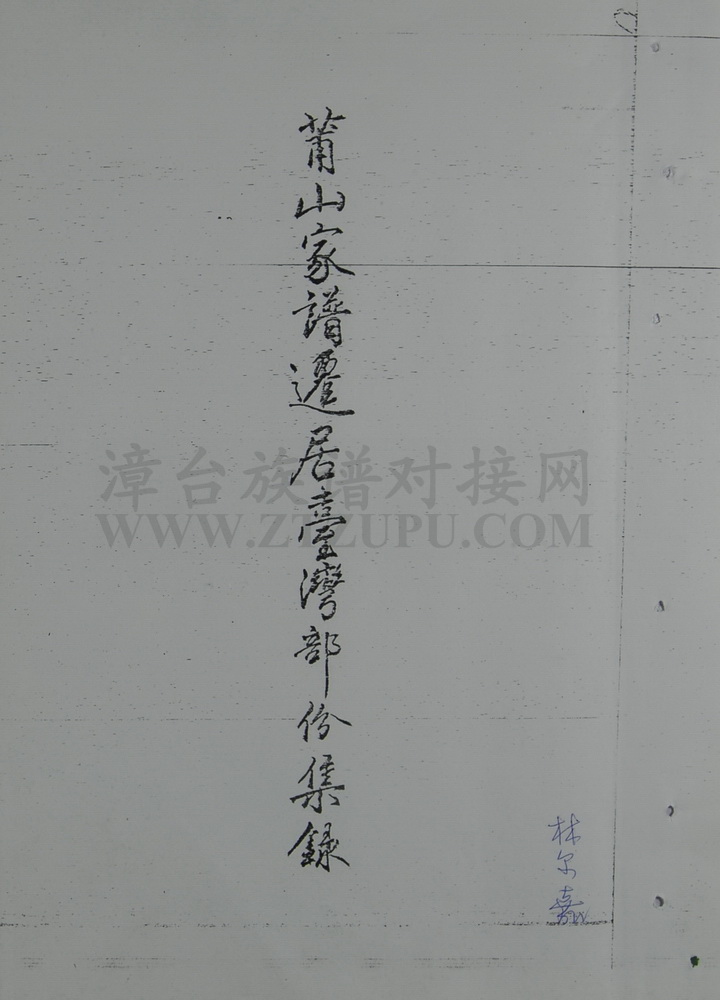 莆山家譜遷居臺灣部份集錄
林尔嘉
漳台族谱对接网
WWW.ZTZUPU.COM